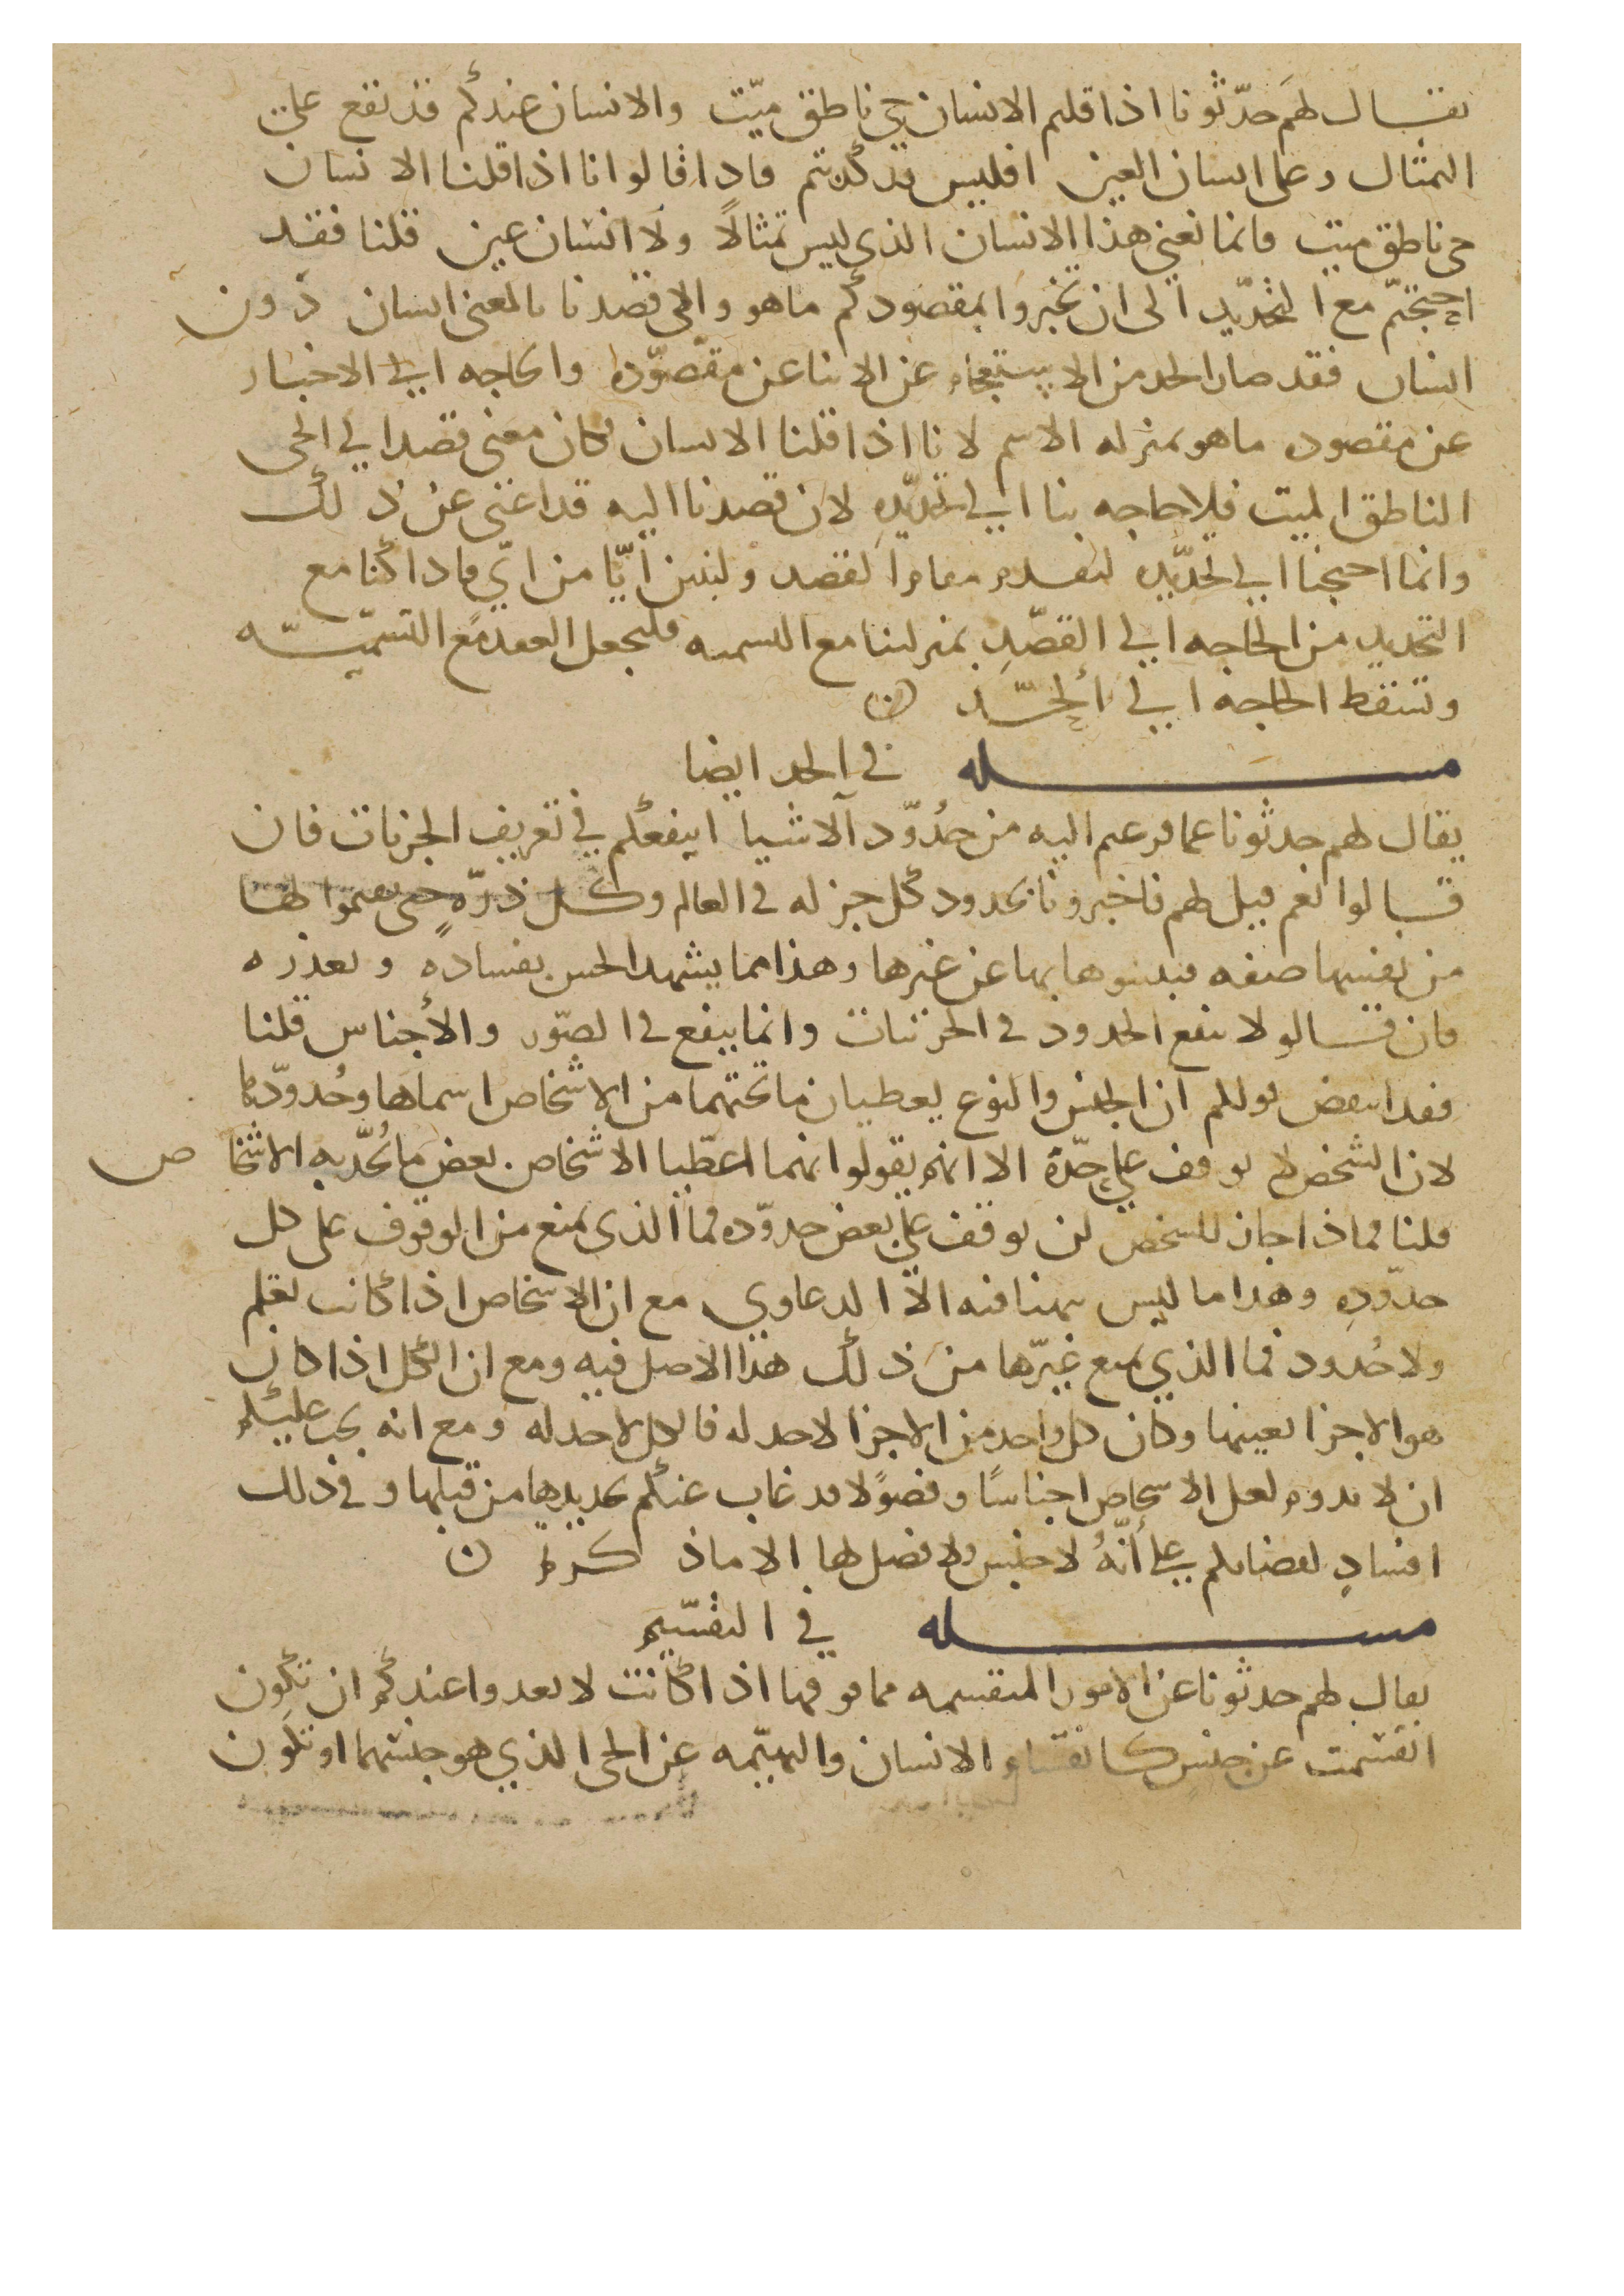 يقال لهم حدّثونا اذا قلتم الانسان حي ناطق ميّت والانسان عندكم قد يقع على
التمثال وعلى انسان العين افليس قد كذبتم فاذا قالوا انا اذا قلنا الانسان
حي ناطق ميت فانما نعني هذا الانسان الذي ليس تمثالًا ولا انسان عين قلنا فقد
احتجتم مع التحديد الى ان تخبروا بمقصودكم ما هو والى قصدنا بالمعنى انسان دون
انسان فقد صار الحد من الاستغناء عن الابنا عن مقصوده والحاجه الى الاخبار
عن مقصوده ما هو بمنزله الاسم لانا اذا قلنا الانسان فكان معنى قصدا الى الحي
الناطق الميت فلا حاجه بنا الى تحديده لان قصدنا اليه قد اغنى عن ذلك
وانما احتجنا الى تحديده ليقدم مقام القصد وليبين ايّا من ايّ فاذا كنا مع
التحديد من الحاجه الى القصد بمنزلتنا مع التسميه فليجعل العقد مع التسميّه
وتسقط الحاجه الى الحد ن
مسله في الحد ايضا
يقال لهم حدثونا عما فزعتم اليه من حُدُوّد الاشيا اينفعكم في تعريف الجزئات فان
قالوا نعم قيل لهم فاخبرونا بحدود كل جز له في العالم وكل ذرّه حتى لها
من نفسها صفه بها عن غيرها وهذا مما يشهد الحس بفساده وتعذره
فان قالو لا ينفع الحدود في الجزئيات وانما ينفع في الصّور والأجناس قلنا
فقد انتقض قولكم ان الجنس والنوع يعطيان ما تحتهما من الاشخاص اسماها وحُدودّها
لان الشخص لا يوقف على حدّه الا انهم يقولوا انهما اعطيا الاشخاص بعض ما تُحدّ به الاشخاص
قلنا فماذا جاز للشخص ان يوقف على بعض حدوّده فما الذي يمنع من الوقوف على كل
حدوّده وهذا ما ليس بهنا فيه الاّ الدعاوي مع ان الاشخاص اذا كانت تعلم
ولا حُدود فما الذي يمنع غيرّها من ذلك هذا الاصل فيه ومع ان الكل اذا كان
هو الاجزا بعينها وكان كل واحد من الاجزا لا حد له فالكل لا حد له ومع انه يجب عليكم
ان لا تدروا لعل الاشخاص اجناسًا وفصولًا قد غاب عنكم تحديدها من قبلها وفي ذلك
افساد لقضائكم على أنّهُ لا جنس ولا فصل لها الا ما ذكرتم ن
مسله في التقسيم
يقال لهم حدثونا عن الامور المنقسمه مما فوقها اذا كانت لا تعدوا عندكم ان تكون
انقسمت عن جنس كانقسام الانسان والبهيّمه عن الحي الذي هو جنسهما او تكون